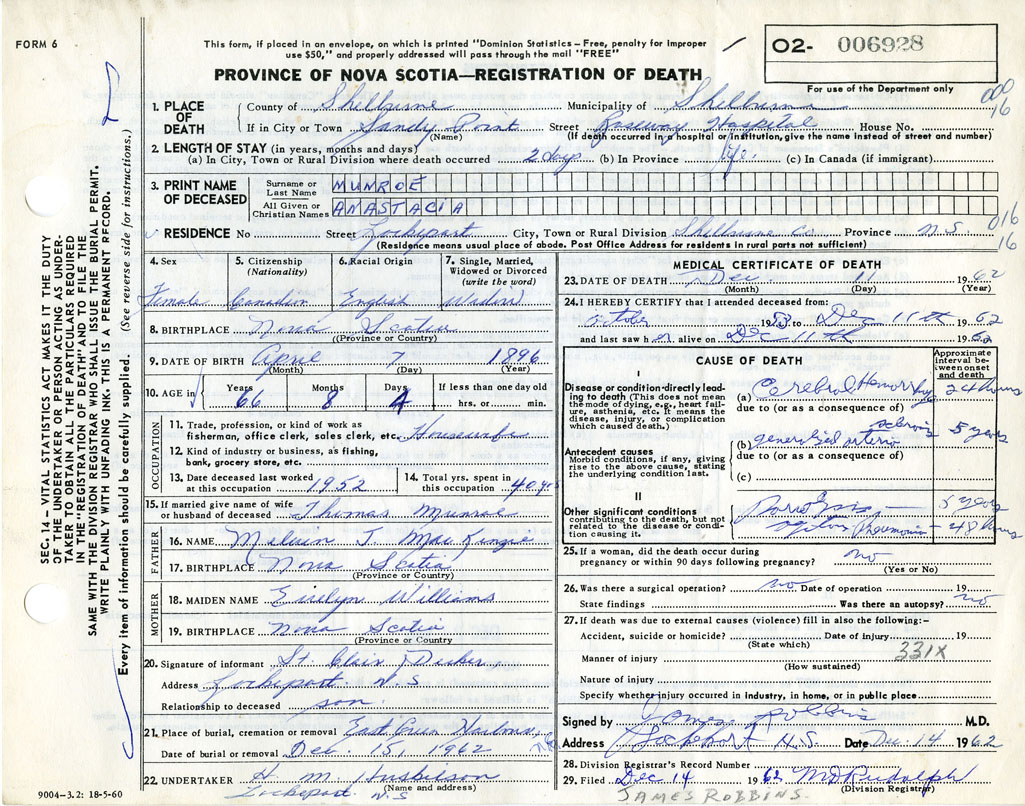 FORM 6
This form, if placed in an envelope, on which is printed "Dominion Statistics – Free, penalty for improper
use $50," and properly addressed will pass through the mail "FREE"
O2- 006928
For use of the Department only
PROVINCE OF NOVA SCOTIA—REGISTRATION OF DEATH
000
16
1. PLACE OF DEATH
County of Shelburne Municipality of Shelburne
If in City or Town Sandy Point Street Roseway Hospital House No.
(Name) (If death occurred in a hospital or institution, give the name instead of street and number)
2. LENGTH OF STAY (in years, months and days)
(a) In City, Town or Rural Division where death occurred 2 days (b) In Province life (c) In Canada (if immigrant)
3. PRINT NAME OF DECEASED
Surname or Last Name MUNROE
All Given or Christian Names ANASTACIA
016
16
RESIDENCE No Street Lockeport City, Town or Rural Division Shelburne Co. Province N.S.
(Residence means usual place of abode. Post Office Address for residents in rural parts not sufficient)
4. Sex Female
5. Citizenship (Nationality) Canadian
6. Racial Origin English
7. Single, Married, Widowed or Divorced (write the word) Widow
8. BIRTHPLACE Nova Scotia
(Province or Country)
9. DATE OF BIRTH April 7 1896
(Month) (Day) (Year)
10. AGE in Years 66 Months 8 Days 4 If less than one day old hrs. or min.
OCCUPATION
11. Trade, profession, or kind of work as
fisherman, office clerk, sales clerk, etc. Housewife
12. Kind of industry or business, as fishing,
bank, grocery store, etc.
13. Date deceased last worked at this occupation 1952
14. Total yrs. spent in this occupation 40 yrs
15. If married give name of wife or husband of deceased Thomas Munroe
FATHER
16. NAME Melvin J. MacKenzie
17. BIRTHPLACE Nova Scotia
(Province or Country)
MOTHER
18. MAIDEN NAME Evelyn Williams
19. BIRTHPLACE Nova Scotia
(Province or Country)
20. Signature of informant St. Clair
Address Lockeport. N.S
Relationship to deceased son.
21. Place of burial, cremation or removal East Green Harbour,
Date of burial or removal Dec. 15, 1962
22. UNDERTAKER H. M. Huskilson
(Name and address)
Lockeport N.S
9004-3.2: 18-5-60
MEDICAL CERTIFICATE OF DEATH
23. DATE OF DEATH Dec 11 1962
(Month) (Day) (Year)
24. I HEREBY CERTIFY that I attended deceased from:
October 19 to Dec 11th 1962
and last saw h er alive on Dec 11th 1962
CAUSE OF DEATH
Approximate interval between onset and death
I
Disease or condition directly leading to death (This does not mean the mode of dying, e.g., heart failure, asthenia, etc. It means the disease, injury, or complication which caused death.)
(a) Cerebral Hemorrhage 24 hours
due to (or as a consequence of)
Antecedent causes
Morbid conditions, if any, giving rise to the above cause, stating the underlying condition last.
(b) generalized arterio sclerosis 5 years
due to (or as a consequence of)
(c)
II
Other significant conditions
contributing to the death, but not related to the disease or condition causing it.
5 years
Pneumonia – 48 hours
25. If a woman, did the death occur during
pregnancy or within 90 days following pregnancy? no
(Yes or No)
26. Was there a surgical operation? no Date of operation 19
State findings Was there an autopsy? no.
27. If death was due to external causes (violence) fill in also the following:-
Accident, suicide or homicide? Date of injury 19
(State which)
331X
Manner of injury
(How sustained)
Nature of injury
Specify whether injury occurred in industry, in home, or in public place
Signed by James Robbins M.D.
Address Lockeport N.S. Date Dec. 14 1962
28. Division Registrar's Record Number
29. Filed Dec 14 1962 M D Rudolph
(Division Registrar)
JAMES ROBBINS.
SEC. 14 – VITAL STATISTICS ACT MAKES IT THE DUTY
OF THE UNDERTAKER OR PERSON ACTING AS UNDER-
TAKER TO OBTAIN ALL THE PARTICULARS REQUIRED
IN THE "REGISTRATION OF DEATH" AND TO FILE THE
SAME WITH THE DIVISION REGISTRAR WHO SHALL ISSUE THE BURIAL PERMIT.
WRITE PLAINLY WITH UNFADING INK. THIS IS A PERMANENT RECORD.
Every item of information should be carefully supplied. (See reverse side for instructions.)